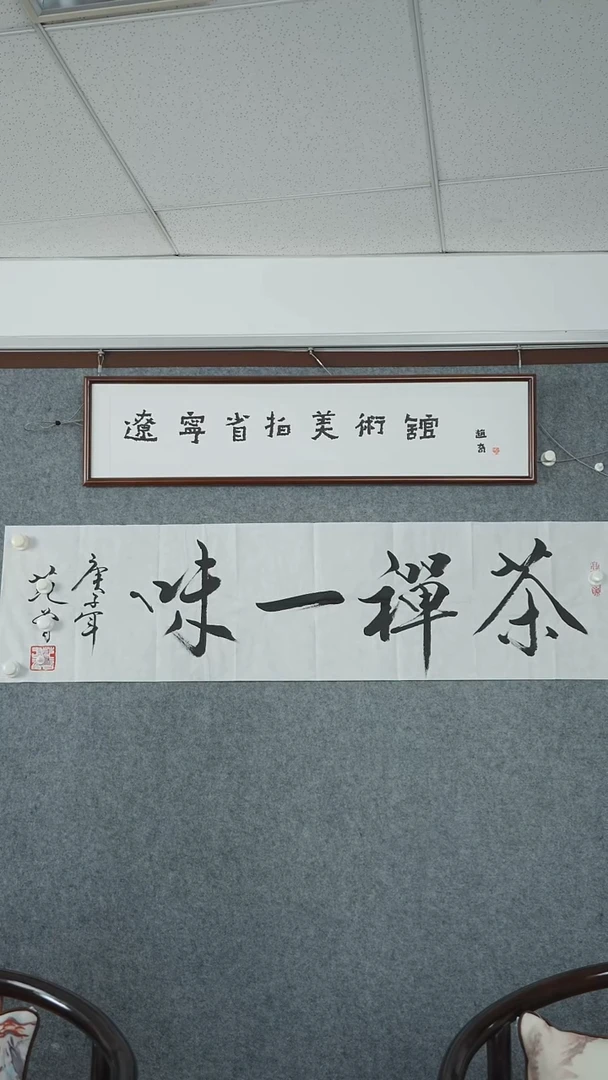 遼寧省拍美術館
趙奇
茶禪一味
庚子年